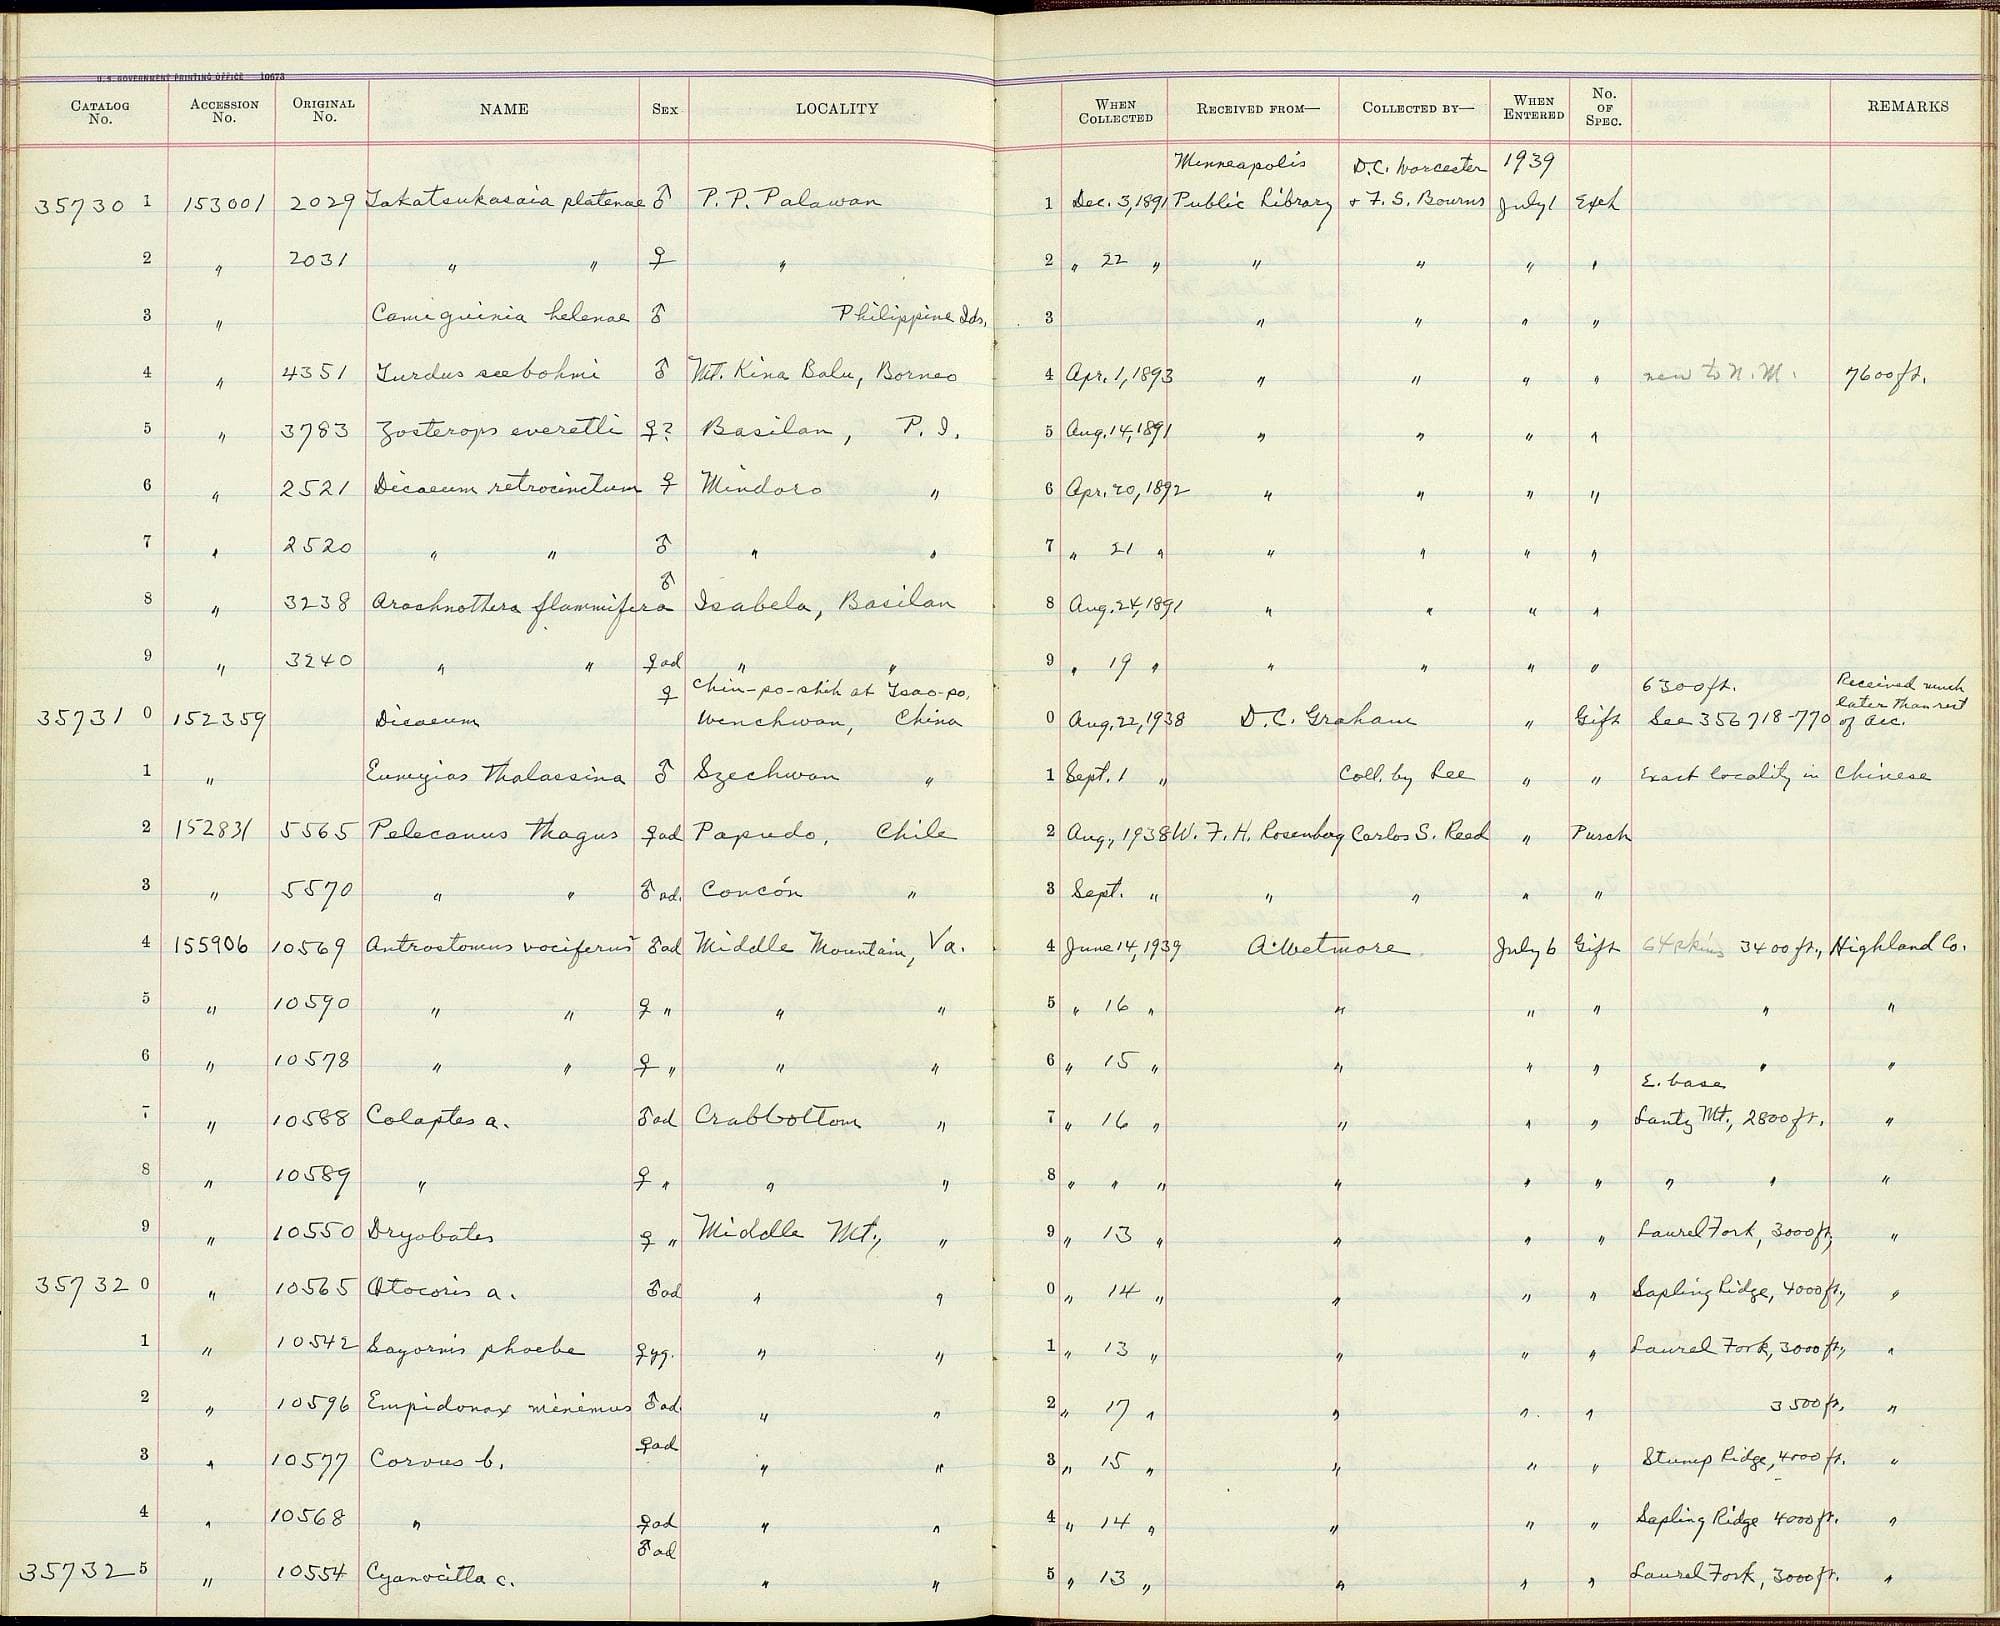 U.S. GOVERNMENT PRINTING OFFICE 10673
CATALOG No. ACCESSION No. ORIGINAL No. NAME SEX LOCALITY WHEN COLLECTED RECEIVED FROM— COLLECTED BY— WHEN ENTERED No. OF SPEC. REMARKS
Minneapolis D.C. Worcester 1939
35730 1 153001 2029 Takatsukasaia platenae ♂ P. P. Palawan 1 Dec. 3, 1891 Public Library + F. S. Bourns July 1 Exch
2 " 2031 " " ♀ " 2 " 22 " " " " "
3 " Camiguinia helenae ♂ Philippine Ids. 3 " " " "
4 " 4351 Turdus seebohmi ♂ Mt. Kina Balu, Borneo 4 Apr. 1, 1893 " " " " new to N. M. 7600 ft.
5 " 3783 Zosterops everetti ♀? Basilan, P. I. 5 Aug. 14, 1891 " " " "
6 " 2521 Dicaeum retrocinctum ♀ Mindoro " 6 Apr. 20, 1892 " " " "
7 " 2520 " " ♂ " " 7 " 21 " " " " "
8 " 3238 Arachnothera flammifera ♂ Isabela, Basilan 8 Aug. 24, 1891 " " " "
9 " 3240 " " ♀ ad " " 9 " 19 " " " " "
♀ Chin-po-shih at Tsao-po, 6300 ft. Received much
35731 0 152359 Dicaeum Wenchwan, China 0 Aug. 22, 1938 D. C. Graham " Gift See 356718-770 later than rest of acc.
1 " Eumyias thalassina ♂ Szechwan " 1 Sept. 1 " Coll. by Lee " " Exact locality in Chinese
2 152831 5565 Pelecanus thagus ♀ ad Papudo, Chile 2 Aug, 1938 W. F. H. Rosenberg Carlos S. Reed " Purch
3 " 5570 " " ♂ ad. Concón " 3 Sept. " " " " "
4 155906 10569 Antrostomus vociferus ♂ ad Middle Mountain, Va. 4 June 14, 1939 A. Wetmore July 6 Gift 64 skins 3400 ft., Highland Co.
5 " 10590 " " ♀ " " " 5 " 16 " " " " " "
6 " 10578 " " ♀ " " " 6 " 15 " " " " " "
E. base
7 " 10588 Colaptes a. ♂ ad Crabbottom " 7 " 16 " " " " Lantz Mt., 2800 ft. "
8 " 10589 " ♀ " " " 8 " " " " " " " " "
9 " 10550 Dryobates ♀ " Middle Mt., " 9 " 13 " " " " Laurel Fork, 3000 ft, "
35732 0 " 10565 Otocoris a. ♂ ad " " 0 " 14 " " " " Sapling Ridge, 4000 ft, "
1 " 10542 Sayornis phoebe ♀ yg. " " 1 " 13 " " " " Laurel Fork, 3000 ft, "
2 " 10596 Empidonax minimus ♂ ad. " " 2 " 17 " " " " 3500 ft. "
3 " 10577 Corvus b. ♀ ad " " 3 " 15 " " " " Stump Ridge, 4000 ft. "
4 " 10568 " ♀ ad " " 4 " 14 " " " " Sapling Ridge 4000 ft. "
35732 5 " 10554 Cyanocitta c. ♂ ad " " 5 " 13 " " " " Laurel Fork, 3000 ft. "